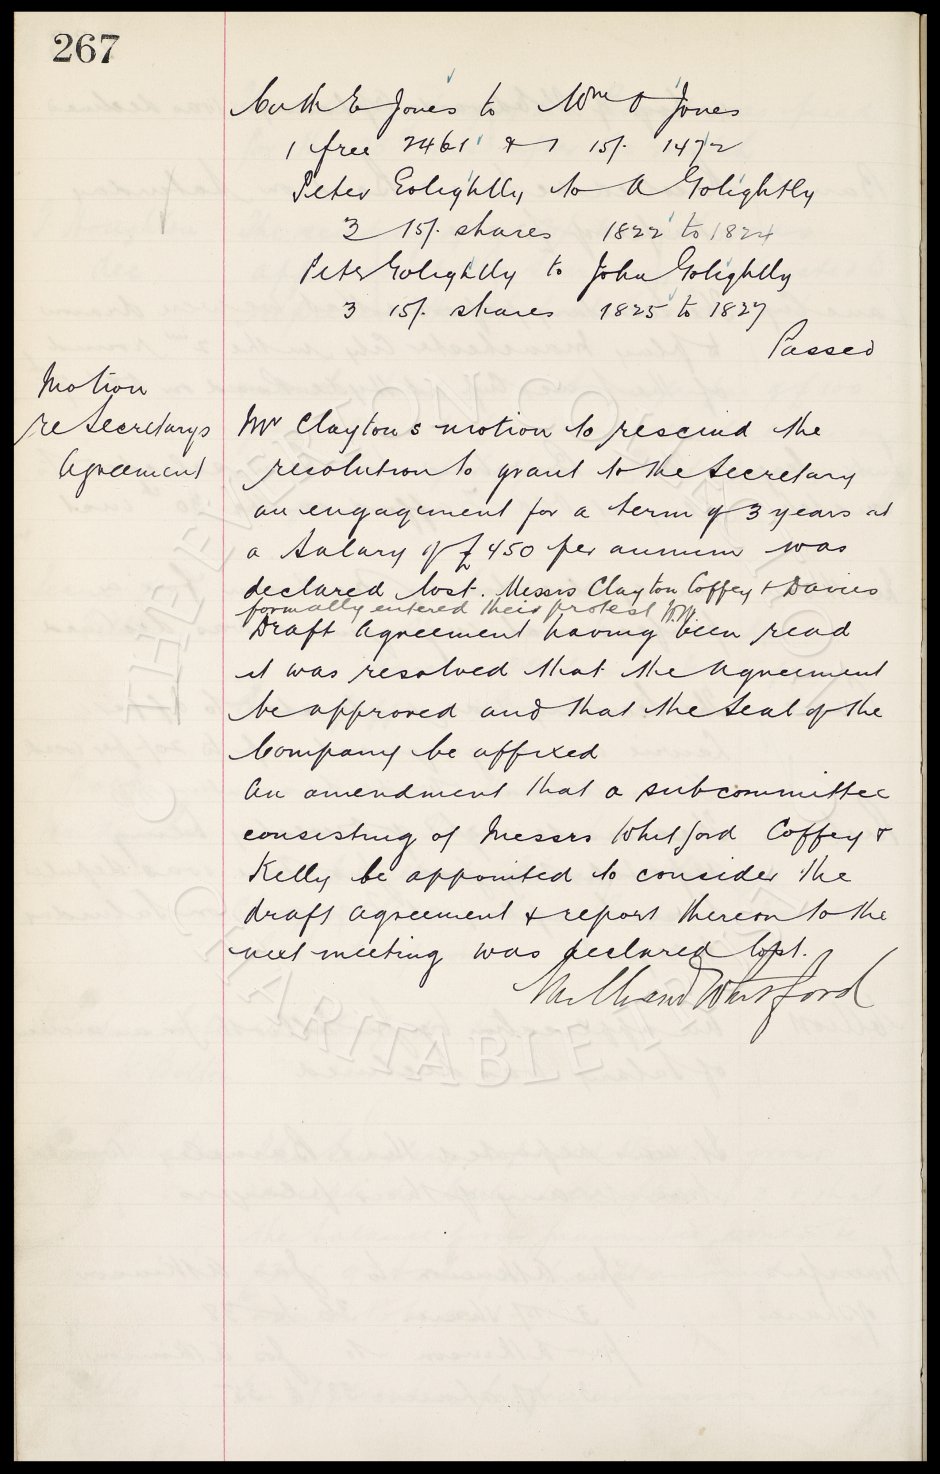 267
Cath E Jones to Wm O Jones
1 free 2461 & 1 15/. 1472
Peter Golightly to A Golightly
3 15/. shares 1822 to 1824
Peter Golightly to John Golightly
3 15/. shares 1825 to 1827
Passed
Motion
re Secretarys
Agreement
Mr Claytons motion to rescind the
resolution to grant to the Secretary
an engagement for a term of 3 years at
a Salary of £450 per annum was
declared lost. Messrs Clayton Coffey & Davies
formally entered their protest W.W.
Draft Agreement having been read
it was resolved that the Agreement
be approved and that the Seal of the
Company be affixed
An amendment that a subcommittee
consisting of Messrs Whitford Coffey &
Kelly be appointed to consider the
draft agreement & report thereon to the
next meeting was declared lost.
Whitford
THE EVERTON COLLECTION
CHARITABLE TRUST